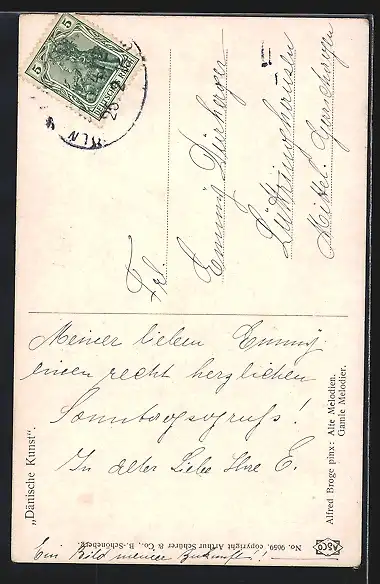 5
5
DEUTSCHES REICH
Frl.
Emmy Dürhager
Lüttringhausen
Mittel-Garschagen
Meiner lieben Emmy
einen recht herzlichen
Sonntagsgruß!
In alter Liebe Ihre E.
Ein Bild meiner Zukunft!!
„Dänische Kunst“.
Alfred Broge pinx: Alte Melodien.
Gamle Melodier.
No. 9059, copyright Arthur Schürer & Co., B.-Schöneberg.